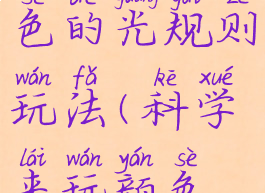 sè de guāng guī zé
色的光规则
wán fǎ kē xué
玩法(科学
lái wán yán sè
来玩颜色